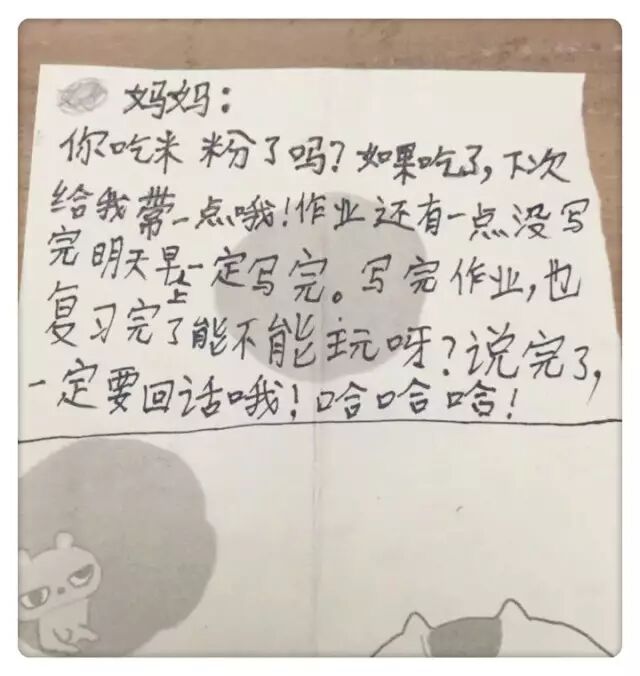 妈妈：
你吃米粉了吗？如果吃了，下次
给我带一点哦！作业还有一点没写
完明天早上一定写完。写完作业，也
复习完了能不能玩呀？说完了，
一定要回话哦！哈哈哈！